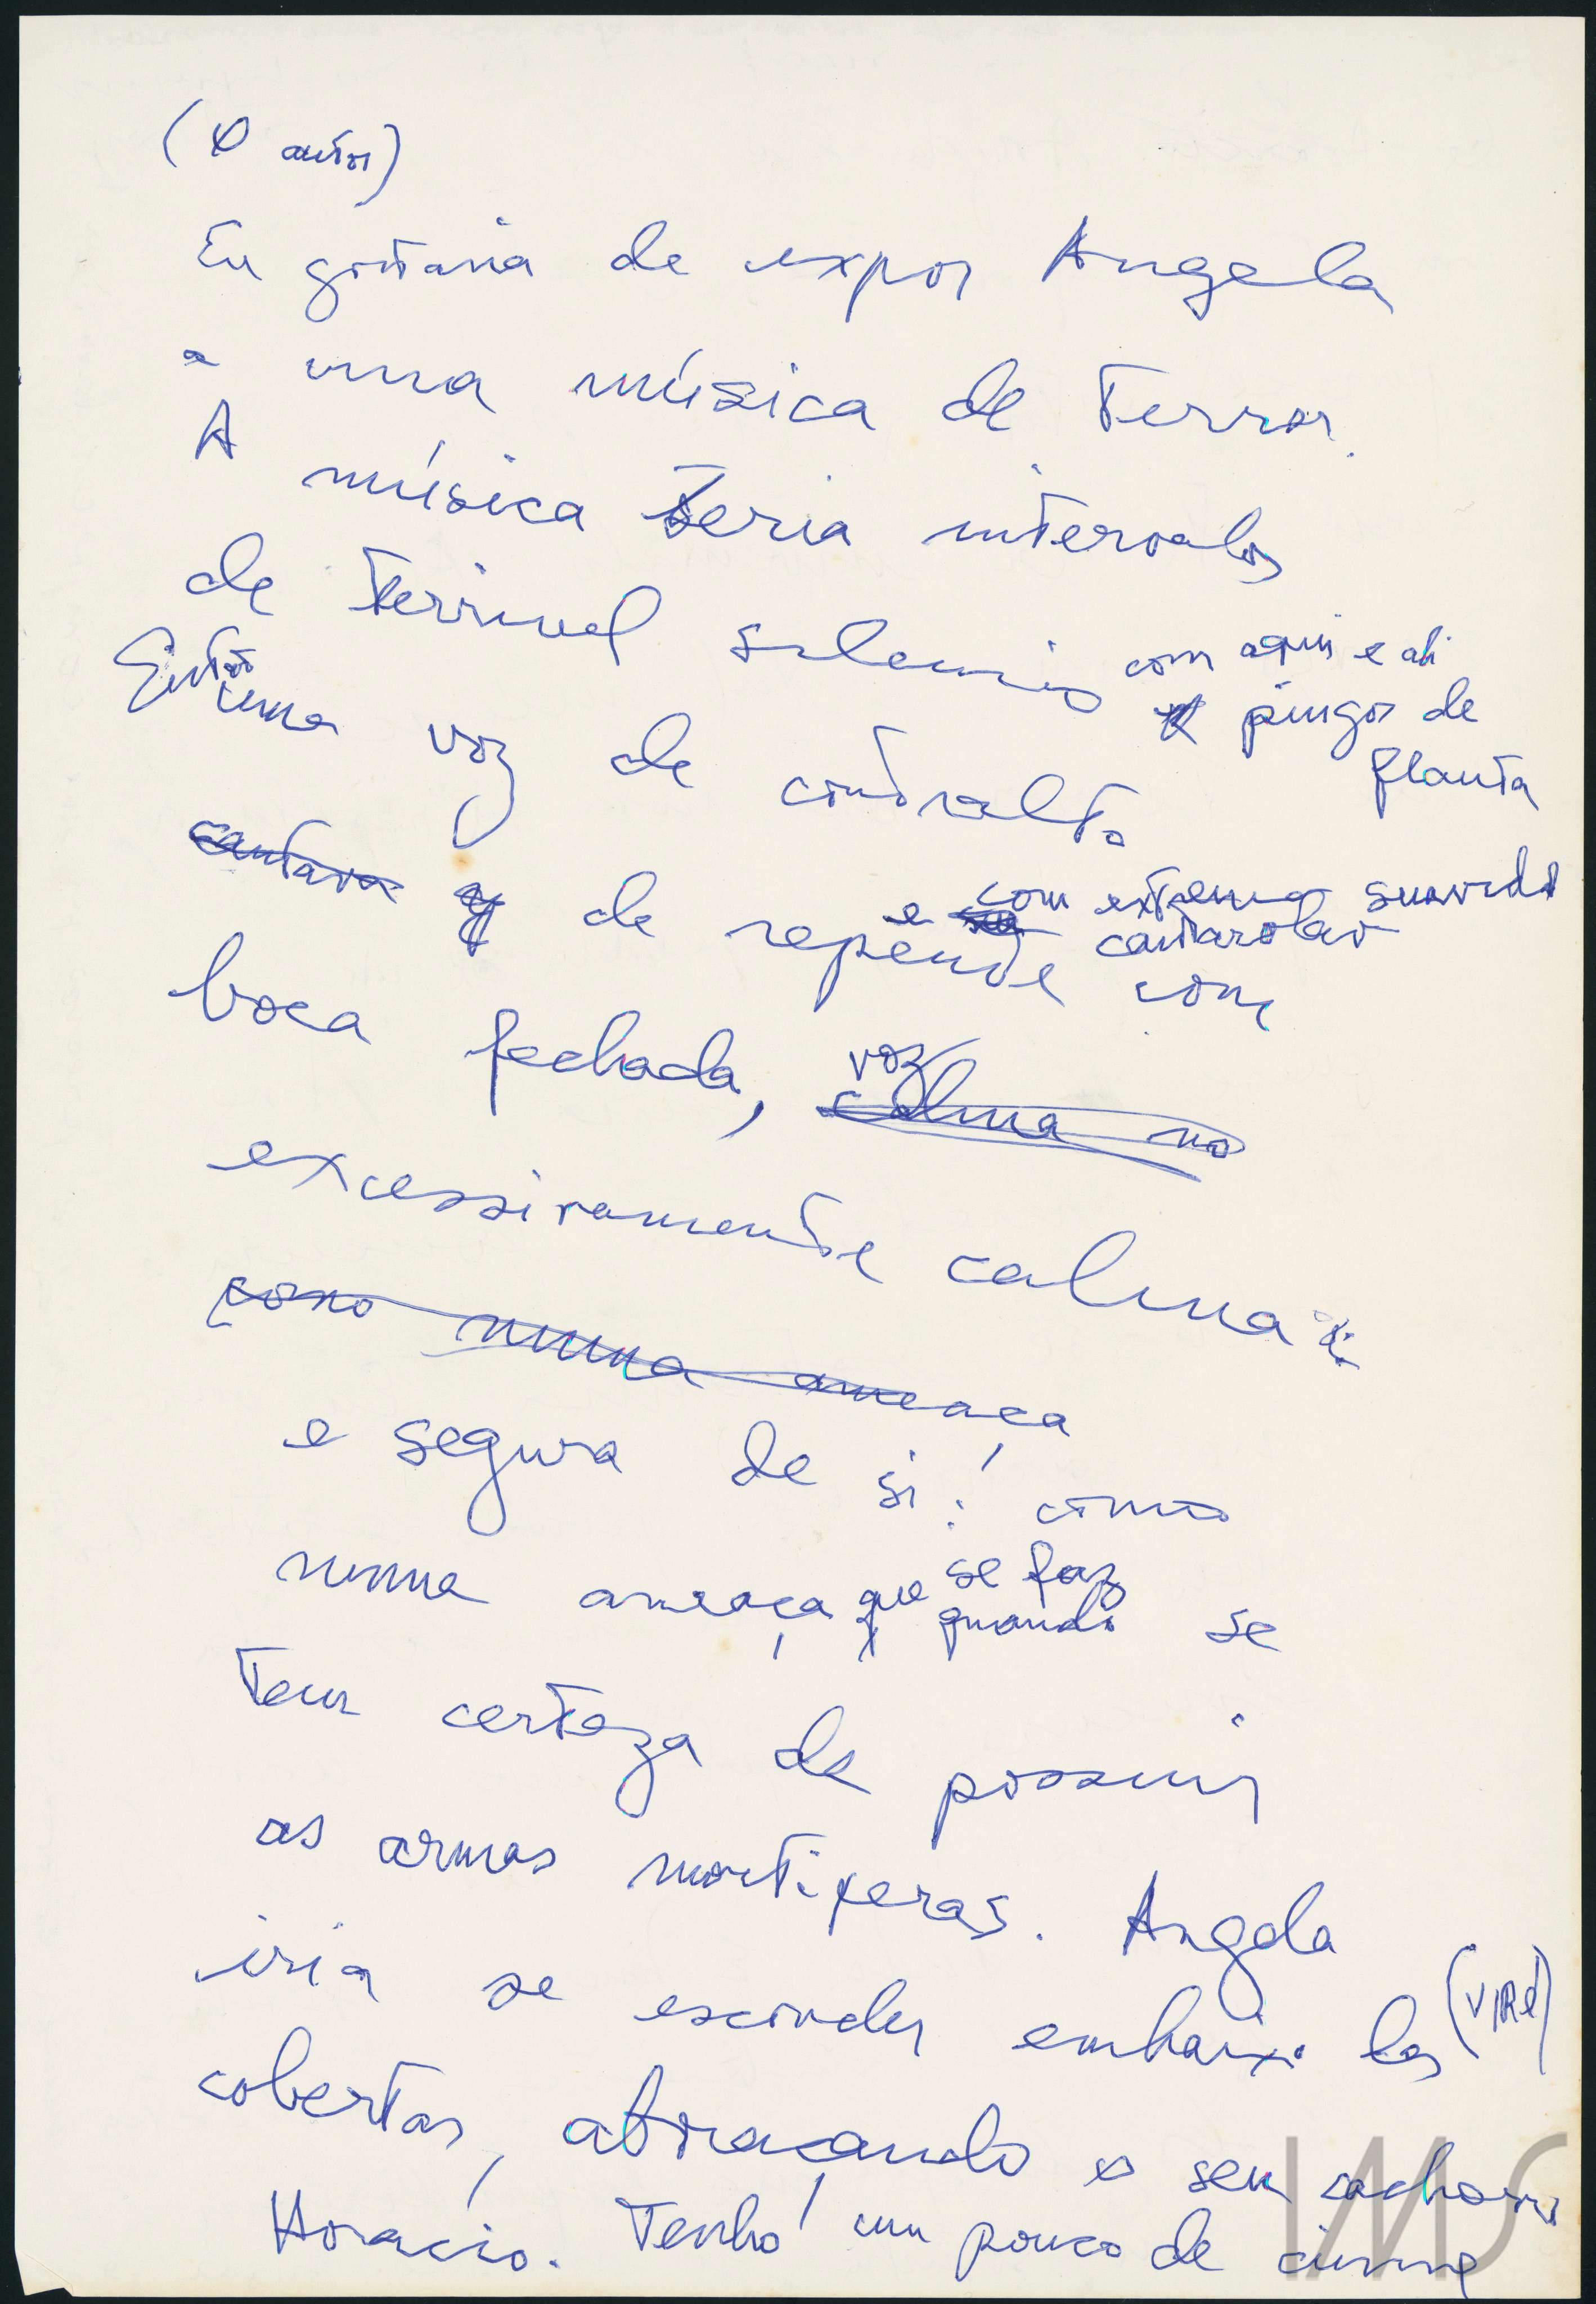 (O autor)
Eu gostaria de expor Angela
a uma música de terror.
A música teria intervalos
de terrivel silencio com aqui e ali
pingos de
flauta
Então
uma voz de contralto
cantava de repente e com extrema suavida
cantarolav
com
boca fechada, voz
calma no
excessivamente calma
como numa ameaça
e segura de si: como
numa ameaça que se faz
quando se
tem certeza de possuir
as armas mortiferas. Angela
iria se esconder embaixo das (VIRE)
cobertas, abraçando o seu cachorro
Horacio. Tenho um pouco de ciume
IMS